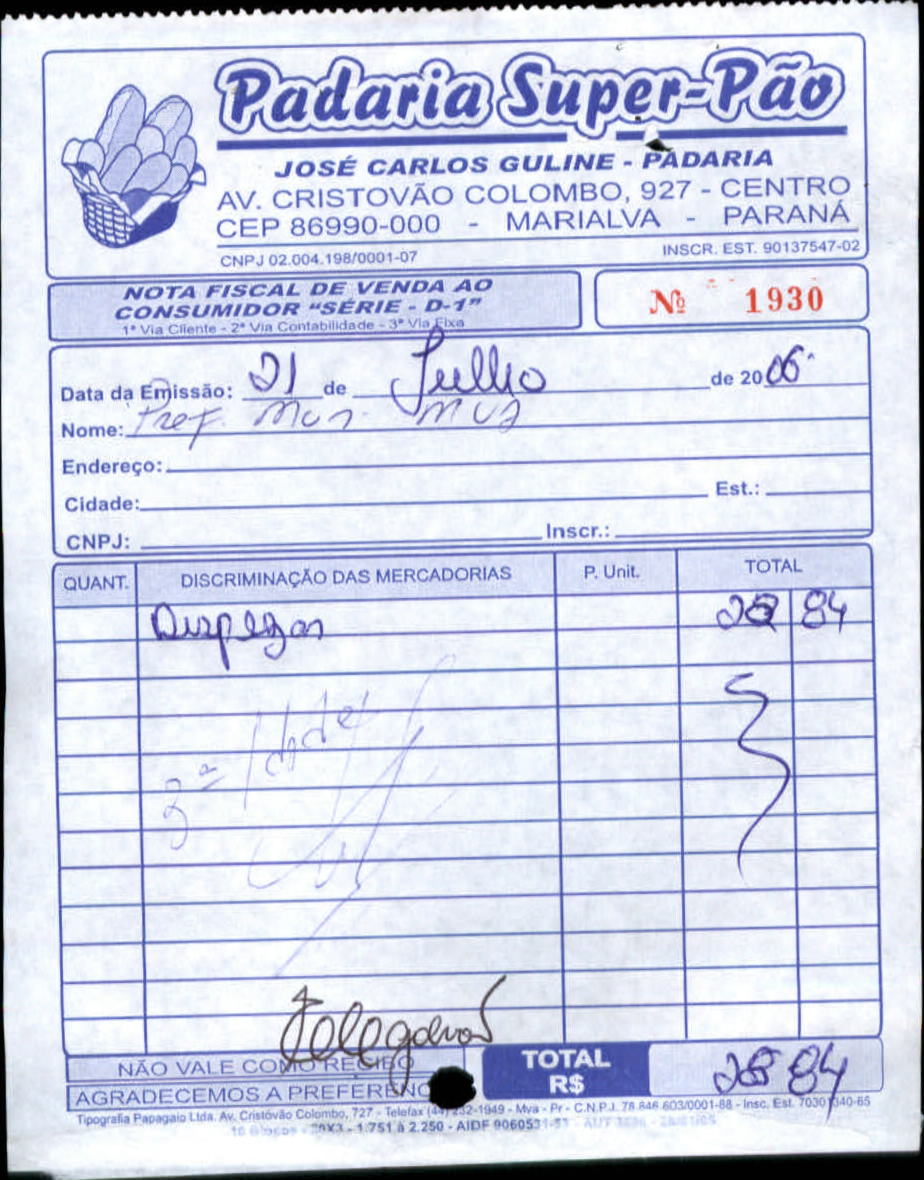 Padaria Super-Pão
JOSÉ CARLOS GULINE - PADARIA
AV. CRISTOVÃO COLOMBO, 927 - CENTRO
CEP 86990-000 - MARIALVA - PARANÁ
CNPJ 02.004.198/0001-07 INSCR. EST. 90137547-02
NOTA FISCAL DE VENDA AO
CONSUMIDOR "SÉRIE - D-1"
1ª Via Cliente - 2ª Via Contabilidade - 3ª Via Fixa
Nº 1930
Data da Emissão: 21 de Julho de 2006
Nome: Pref. Mun. Mva
Endereço:
Cidade: Est.:
CNPJ: Inscr.:
QUANT. DISCRIMINAÇÃO DAS MERCADORIAS P. Unit. TOTAL
Dispezas 28 84
3ª Idade
NÃO VALE COMO RECIBO
AGRADECEMOS A PREFERÊNC
TOTAL
R$ 28 84
Tipografia Papagaio Ltda. Av. Cristóvão Colombo, 727 - Telefax (44) 232-1949 - Mva - Pr - C.N.P.J. 78.846.603/0001-88 - Insc. Est. 70301340-65
10 Blocos - 50X3 - 1.751 à 2.250 - AIDF